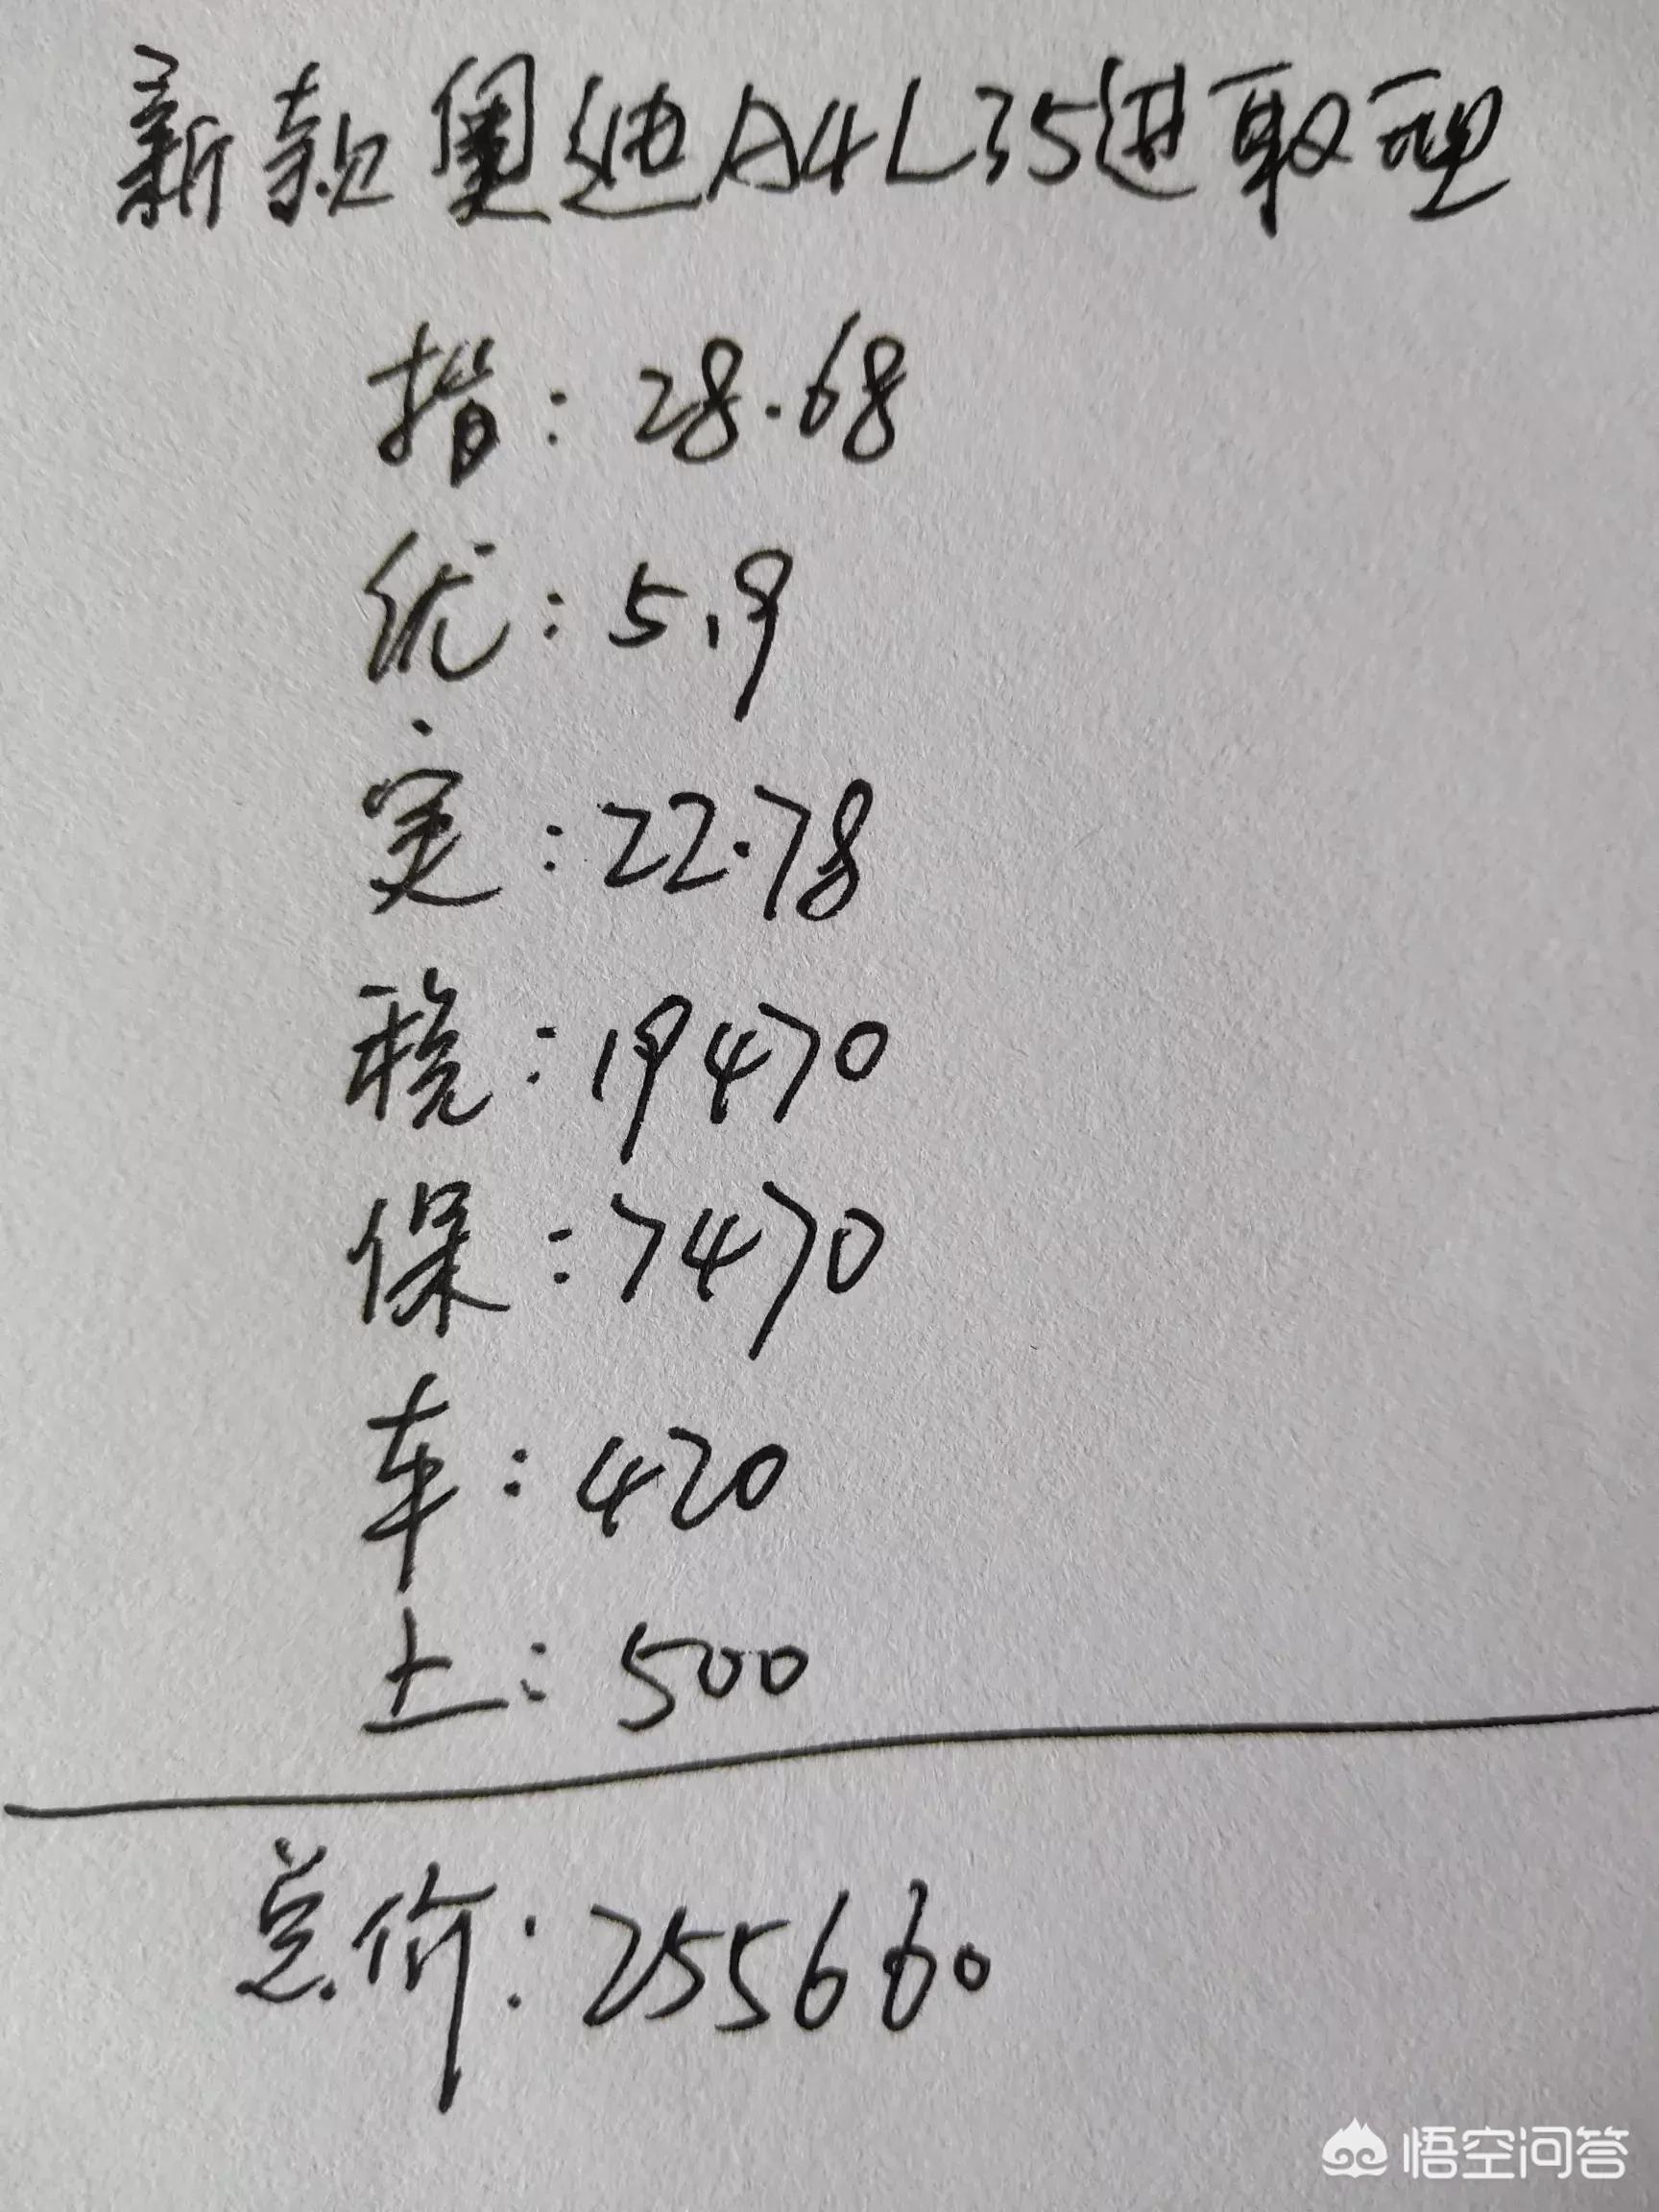 新款奥迪A4L35进取型
指:28.68
优:5.9
实:22.78
税:19470
保:7470
车:420
上:500
总价:255660
悟空问答